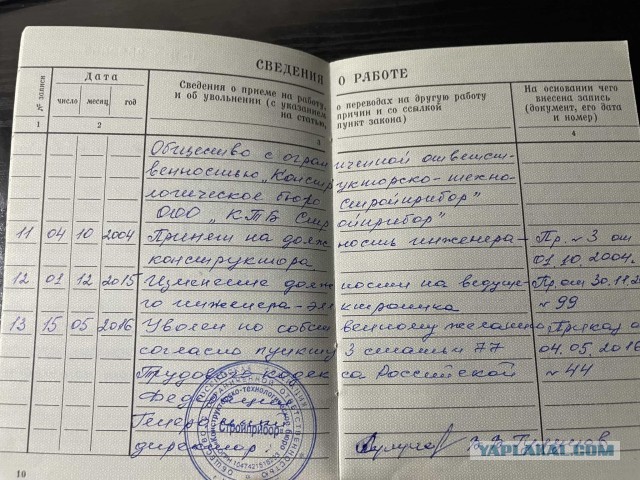 СВЕДЕНИЯ О РАБОТЕ
№ записи
Дата
число месяц год
Сведения о приеме на работу, о переводах на другую работу
и об увольнении (с указанием причин и со ссылкой
на статью, пункт закона)
На основании чего
внесена запись
(документ, его дата
и номер)
1 2 3 4
Общество с ограниченной ответст-
венностью „Конструкторско-техно-
логическое бюро Стройприбор"
ООО „КТБ Стройприбор"
11 04 10 2004 Принят на должность инженера- Пр. №3 от
конструктора 01.10.2004.
12 01 12 2015 Изменение должности на ведуще- Пр. от 30.11.2
го инженера-электроника №99
13 15 05 2016 Уволен по собственному желанию Приказ о
согласно пункту 3 статьи 77 04.05.2016
Трудового кодекса Российской №44
Федерации
Генеральный
директор
Стройприбор
10
YAPLAKAL.COM